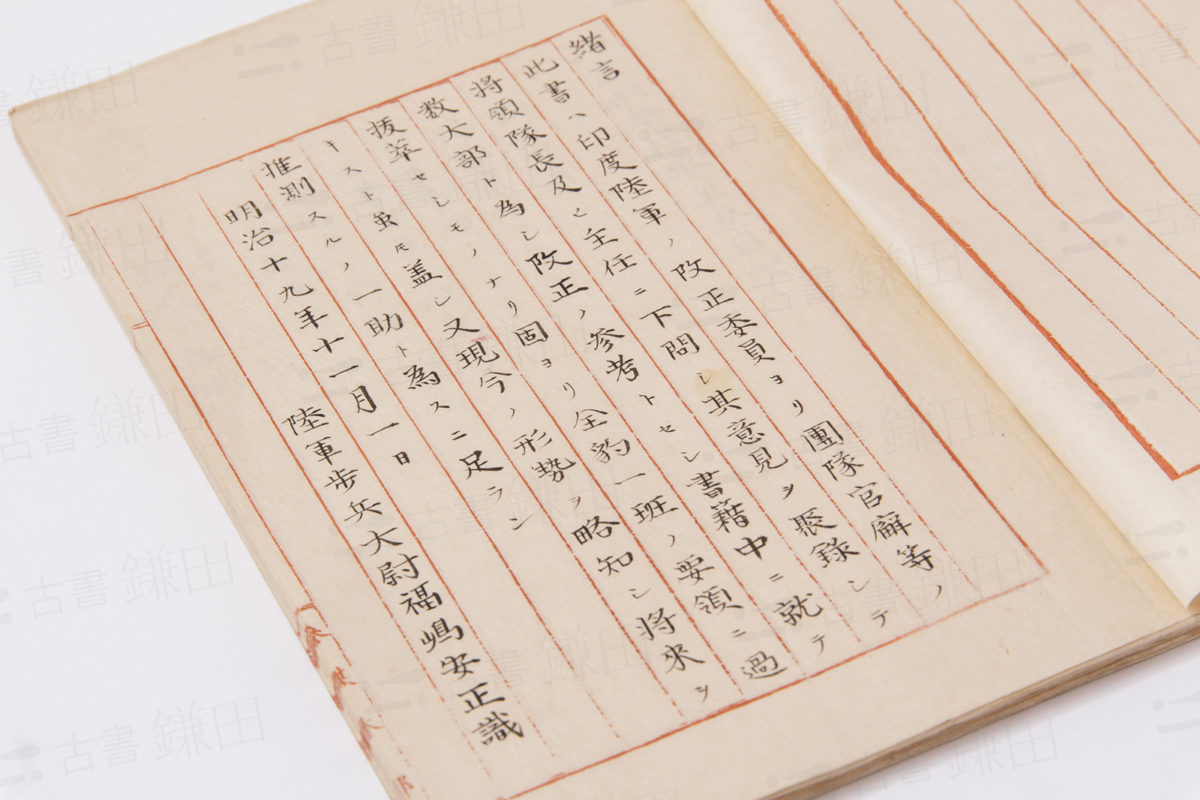 緒言
此書ハ印度陸軍ノ改正委員ヨリ團隊官廨等ノ
将領隊長及ヒ主任ニ下問シ其意見ヲ聚録シテ
数大部ト為シ改正ノ参考トセシ書籍中ニ就テ
抜萃セシモノナリ固ヨリ全豹一班ノ要領ニ過
キスト虽モ盖シ又現今ノ形勢ヲ略知シ将来ヲ
推測スルノ一助ト為スニ足ラン
明治十九年十一月一日
陸軍歩兵大尉福嶋安正識
古書 鎌田